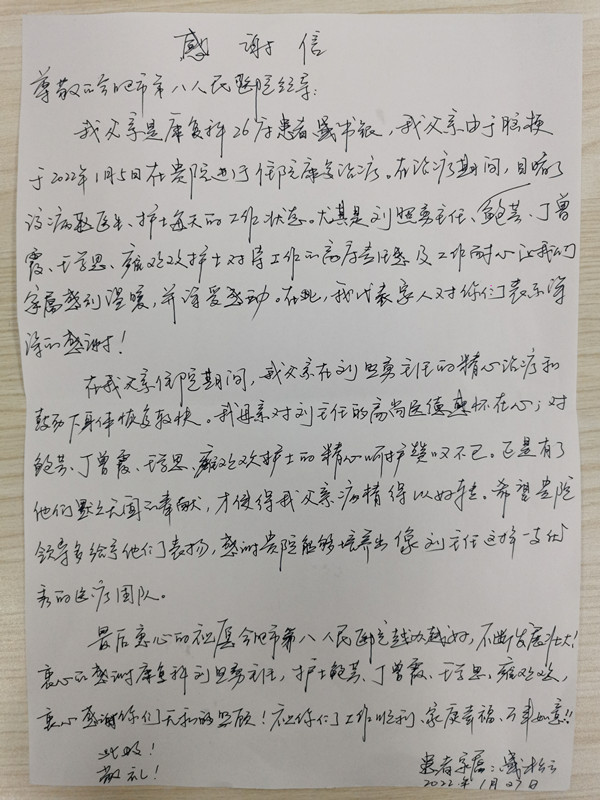 感谢信
尊敬的合肥市第八人民医院领导:
我父亲是康复科26床患者盛书银,我父亲由于脑梗
于2022年1月5日在贵院进行住院康复治疗。在治疗期间,目睹了
该病区医生、护士每天的工作状态。尤其是刘照勇主任、鲍芸、丁曾
霞、王学思、雍欢欢护士对待工作的高度责任感及工作耐心让我们
家属感到温暖,并深受感动。在此,我代表家人对你们表示深
深的感谢!
在我父亲住院期间,我父亲在刘照勇主任的精心治疗和
鼓励下身体恢复较快。我母亲对刘主任的高尚医德感怀在心;对
鲍芸、丁曾霞、王学思、雍欢欢护士的精心呵护赞叹不已。正是有了
他们默默无闻的奉献,才使得我父亲病情得以好转。希望贵院
领导多给予他们表扬,感谢贵院能够培养出像刘主任这样一支优
秀的医疗团队。
最后衷心的祝愿合肥市第八人民医院越办越好,不断发展壮大!
衷心的感谢康复科刘照勇主任,护士鲍芸、丁曾霞、王学思、雍欢欢,
衷心感谢你们无私的照顾!祝你们工作顺利、家庭幸福、万事如意!!
此致!
敬礼!
患者家属:盛
2022年1月27日